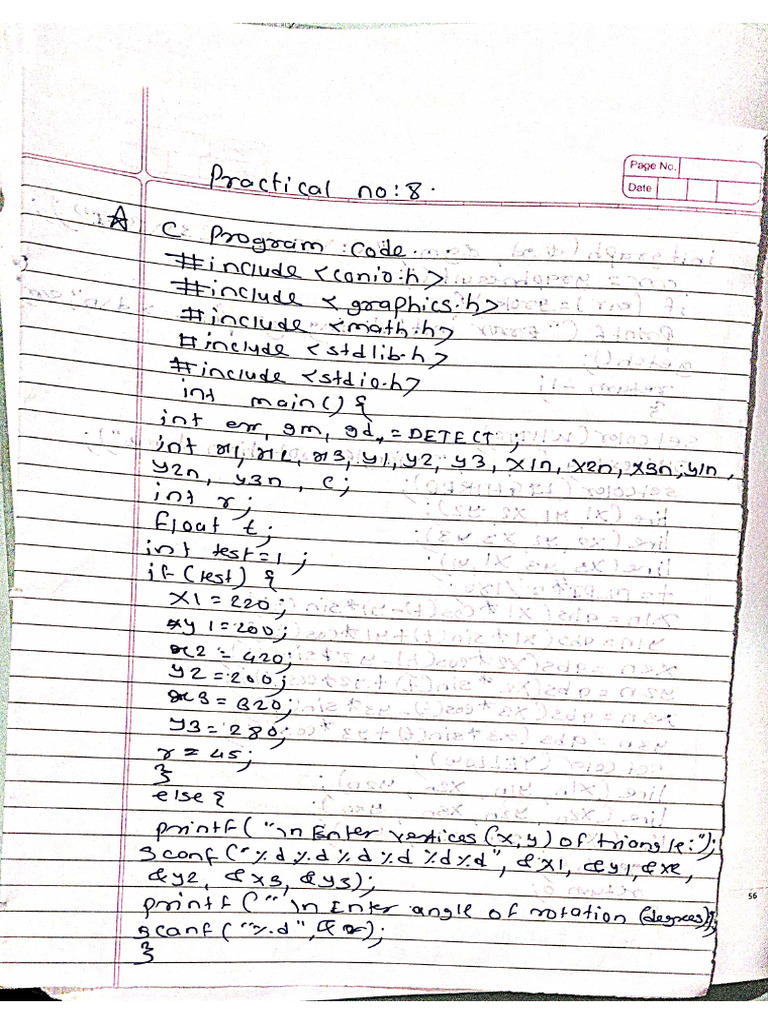 Page No.
Date
Practical no:8.
A C Program :Code.
#include <conio.h>
#include < graphics.h>
#include <math.h>
#include <stdlib.h>
#include <stdio.h>
int main() {
int err, gm, gd, = DETECT ;
int x1, x2, x3, y1, y2, y3, x1n, x2n, x3n, y1n,
y2n, y3n , c;
int r;
float t;
int test=1 ;
if (test) {
x1 = 220;
y1 = 200;
x2 = 420;
y2 = 200;
x3 = 320;
y3 = 280;
r = 45;
}
else {
printf( "\n Enter vertices (x,y) of triangle:");
scanf ("%d %d %d %d %d %d", &x1, &y1, &x2,
&y2, &x3, &y3);
printf (" \n Enter angle of rotation (degrees)
scanf ("%d", & r);
}
56